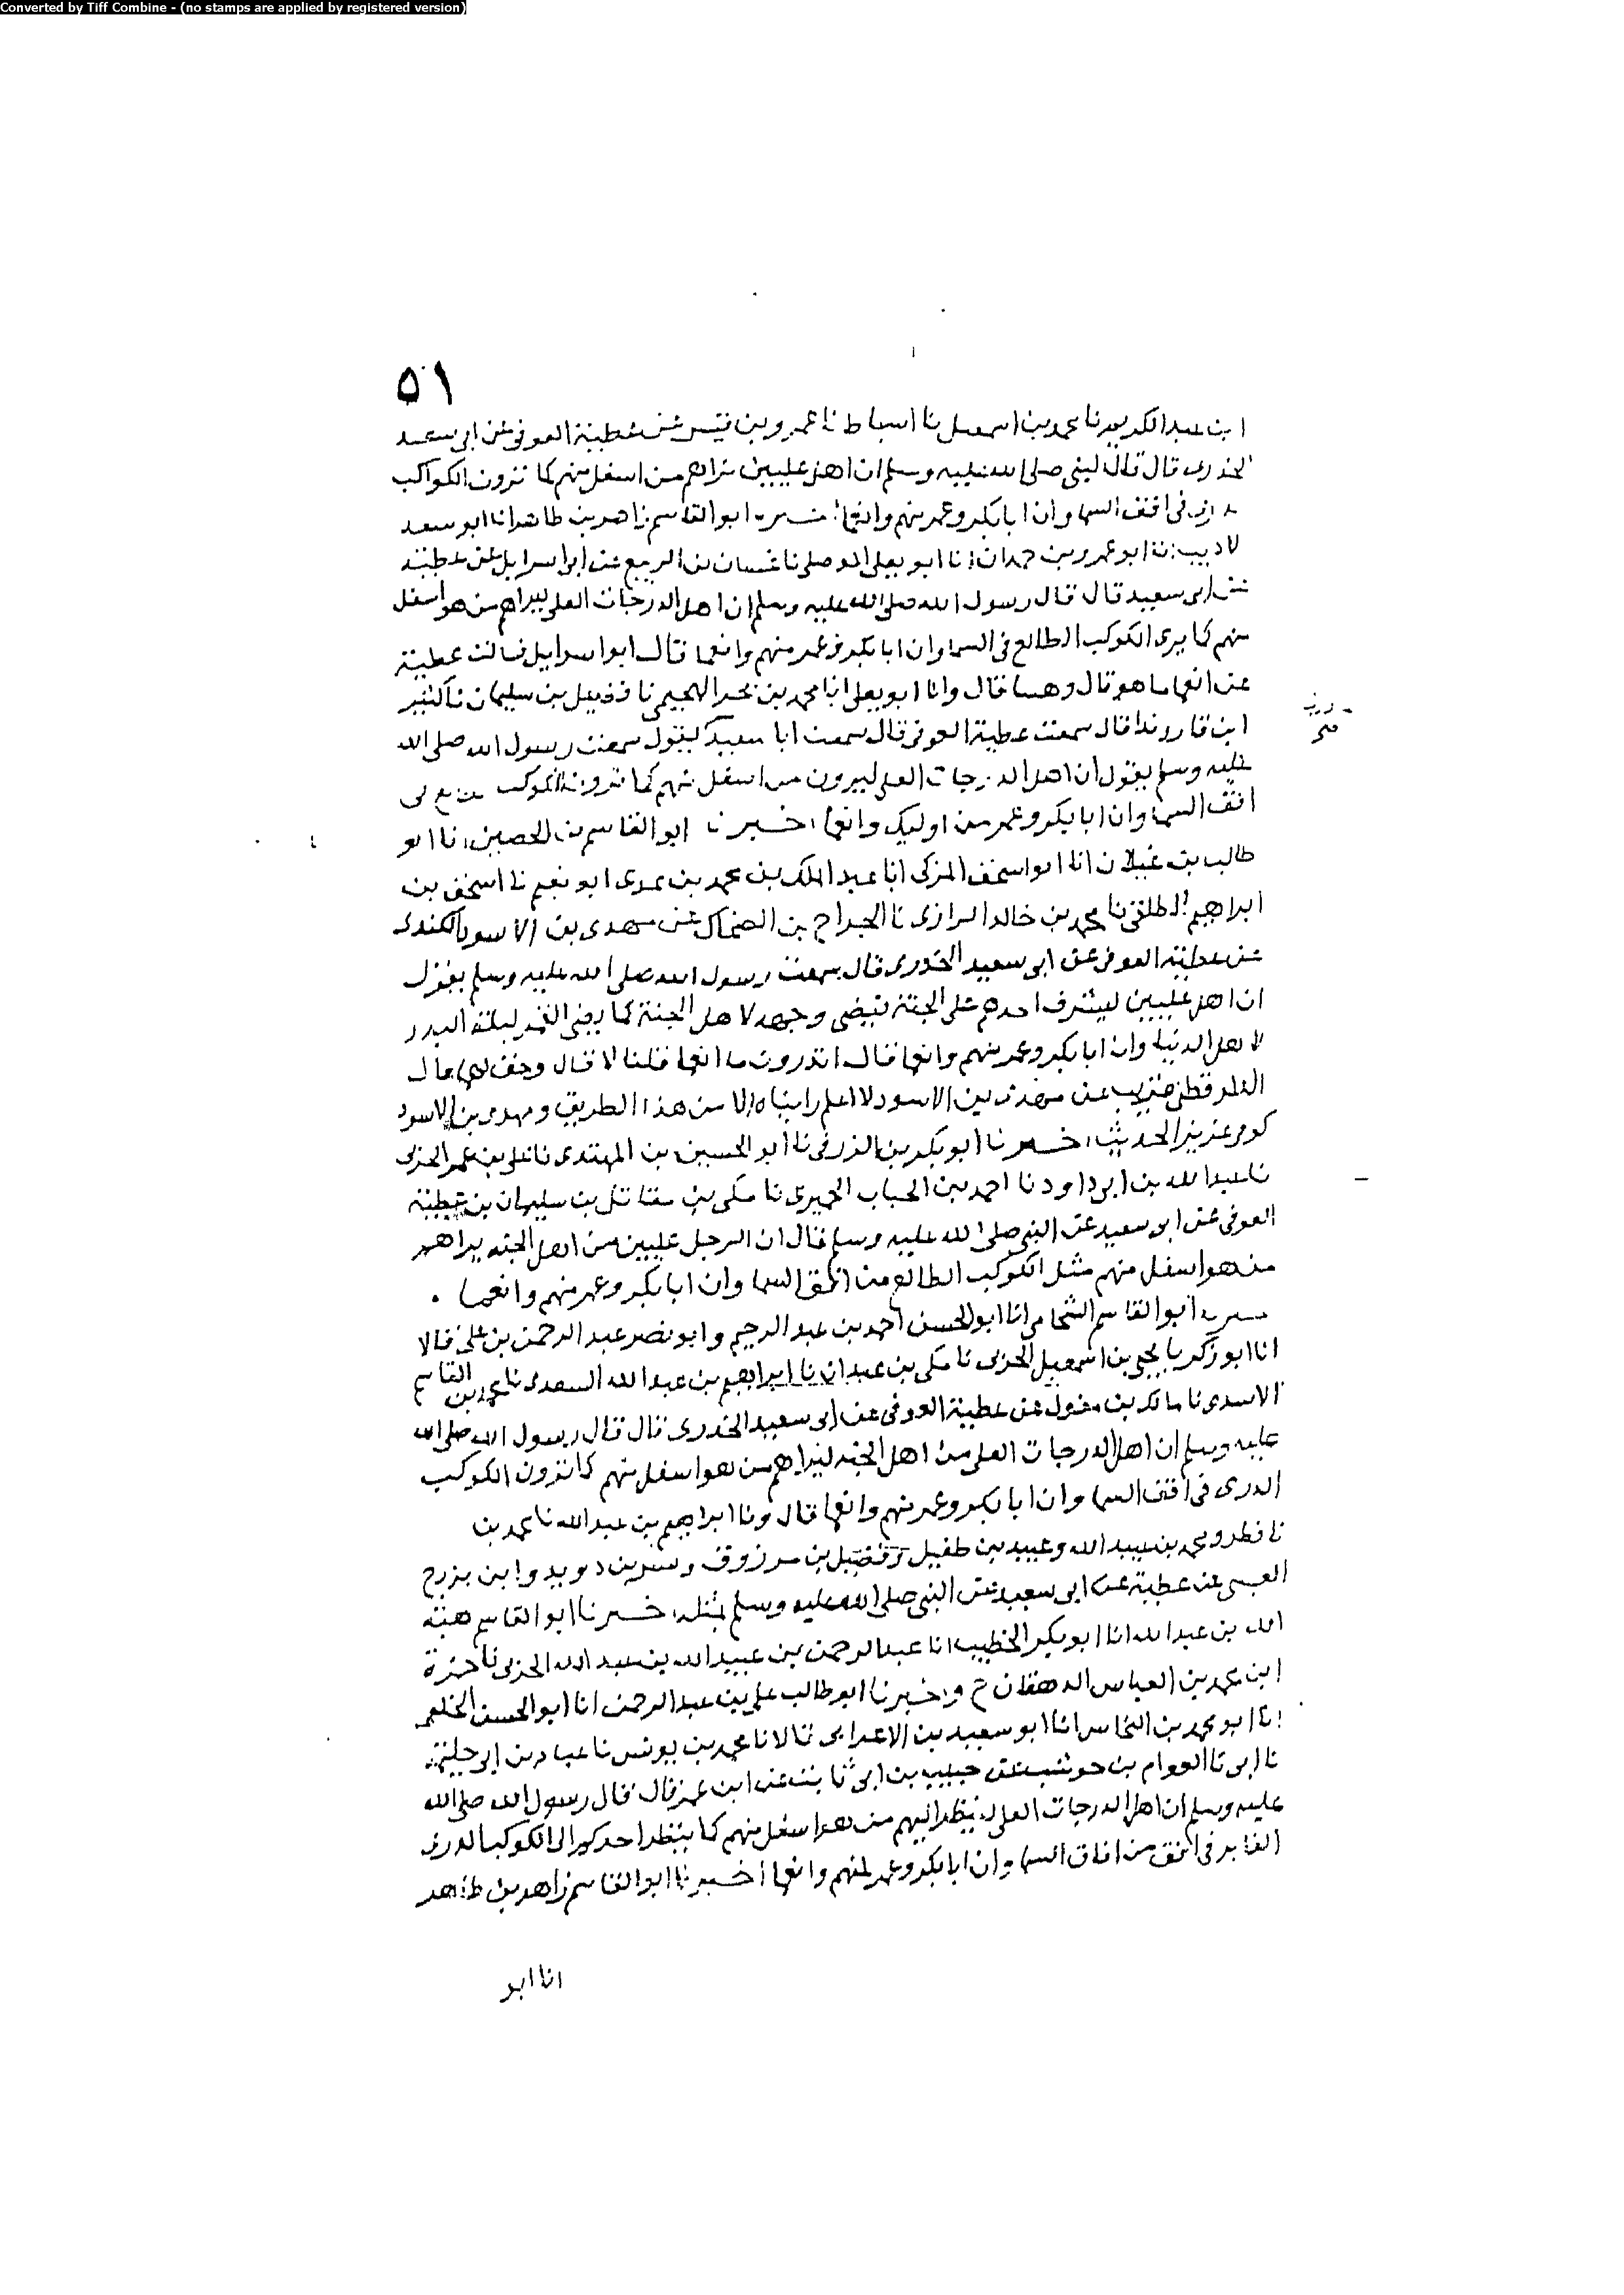 Converted by Tiff Combine - (no stamps are applied by registered version)
٥١
ابن عبد الكريم نا محمد بن اسمعيل نا اسباط نا عمرو بن قيس عن عطية العوفي عن ابي سعيد
الخدري قال قال النبي صلى الله عليه وسلم ان اهل عليين يراهم من اسفل منهم كما ترون الكواكب
في افق السما وان ابا بكر وعمر منهم وانعما ابو القاسم زاهر بن طاهر انا ابو سعد
الاديب انا ابو عمرو بن حمدان انا ابو يعلى الموصلي نا غسان بن الربيع عن ابي اسرايل عن عطية
عن ابي سعيد قال قال رسول الله صلى الله عليه وسلم ان اهل الدرجات العلى ليراهم من هو اسفل
منهم كما يرى الكوكب الطالع في السما وان ابا بكر وعمر منهم وانعما قال ابو اسرايل فسالت عطية
عن انعما ما هو قال وهنيا قال وانا ابو يعلى انا محمد بن بحر الهجيمي نا فضيل بن سليمان نا كثير
ابن قاروندا قال سمعت عطية العوفي قال سمعت ابا سعيد يقول سمعت رسول الله صلى الله
عليه وسلم يقول ان اهل الدرجات العلى ليرون من اسفل منهم كما ترون الكوكب
افق السما وان ابا بكر وعمر من اوليك وانعما اخبرنا ابو القاسم بن الحصين انا ابو
طالب بن غيلان انا ابو اسحق المزكي انا عبد الملك بن محمد بن عدي ابو نعيم نا اسحق بن
ابراهيم الطلقي نا محمد بن خالد الرازي نا الجراح بن الضحاك عن مهدي بن الاسود الكندي
عن عطية العوفي عن ابي سعيد الخدري قال سمعت رسول الله صلى الله عليه وسلم يقول
ان اهل عليين ليشرف احدهم على الجنة فيضي وجهه لاهل الجنة كما يضي القمر ليلة البدر
لاهل الدنيا وان ابا بكر وعمر منهم وانعما قال اتدرون ما انعما قلنا لا قال وحق لهما قال
الدارقطني غريب عن مهدي بن الاسود لا اعلم رايناه الا من هذا الطريق ومهدي بن الاسود
كوفي عزيز الحديث اخبرنا ابو بكر بن المزرفي نا ابو الحسين بن المهتدي نا علي بن عمر الحربي
نا عبد الله بن ابي داود نا احمد بن الحباب الحميري نا مكي بن مقاتل بن سليمان بن عطية
العوفي عن ابي سعيد عن النبي صلى الله عليه وسلم قال ان الرجل عليين من اهل الجنه يراهم
من هو اسفل منهم مثل الكوكب الطالع من افق السما وان ابا بكر وعمر منهم وانعما .
ابو القاسم الشحامي انا ابو الحسن احمد بن عبد الرحيم وابو نصر عبد الرحمن بن علي قالا
انا ابو زكريا يحيى بن اسمعيل الحربي نا مكي بن عبدان نا ابراهيم بن عبد الله السعدي نا محمد بن القاسم
الاسدي نا مالك بن مغول عن عطية العوفي عن ابي سعيد الخدري قال قال رسول الله صلى الله
عليه وسلم ان اهل الدرجات العلى من اهل الجنه ليراهم من هو اسفل منهم كما ترون الكوكب
الدري في افق السما وان ابا بكر وعمر منهم وانعما قال ونا ابراهيم بن عبد الله نا محمد بن
نا فطر ومحمد بن عبيد الله وعبيد بن طفيل وفضيل بن مرزوق و بن دويد وابن بزرج
العبسي عن عطية عن ابي سعيد عن النبي صلى الله عليه وسلم بمثله اخبرنا ابو القاسم هبة
الله بن عبد الله انا ابو بكر الخطيب انا عبد الرحمن بن عبيد الله بن عبد الله الحربي نا حمزة
ابن محمد بن العباس الدهقان ح واخبرنا ابو طالب علي بن عبد الرحمن انا ابو الحسن الخلعي
انا ابو محمد بن النحاس انا ابو سعيد بن الاعرابي قالا نا محمد بن يونس نا عباد بن ابي حليمة
نا ابي نا العوام بن حوشب عن حبيب بن ابي ثابت عن ابن عمر قال قال رسول الله صلى الله
عليه وسلم ان اهل الدرجات العلى لينظر اليهم من هو اسفل منهم كما ينظر احدكم الى الكوكب الدري
الغابر في افق من افاق السما وان ابا بكر وعمر لمنهم وانعما اخبرنا ابو القاسم زاهر بن طاهر
انا ابو